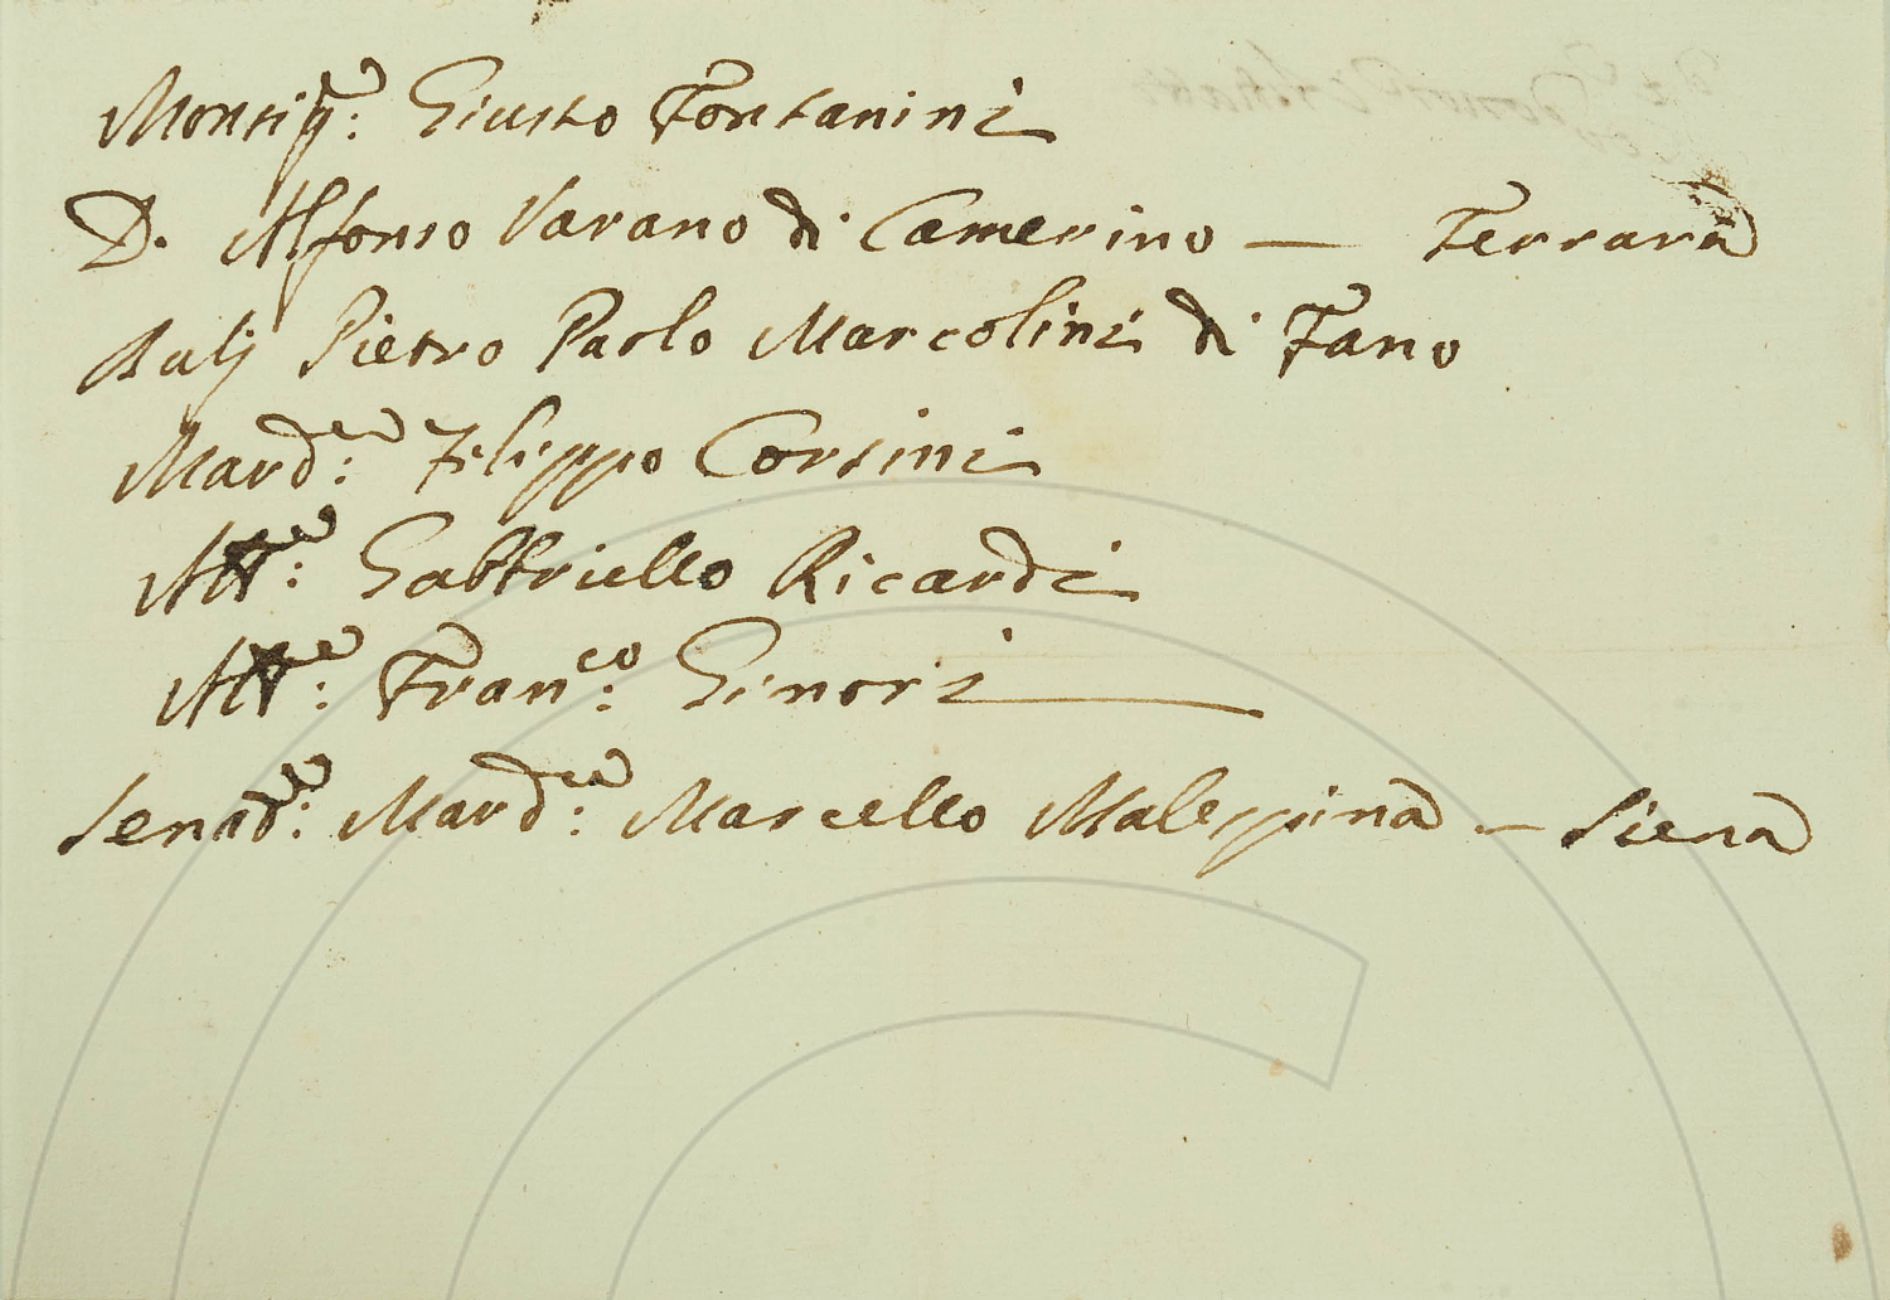 Monsig.r: Giusto Fontanini
D. Alfonso Varano di Camerino — Ferrara
Balj Pietro Paolo Marcolini di Fano
March.e: Filippo Corsini
M.e: Gabbriello Ricardi
M.e: Fran.co: Ginori
Senat.e: March.e: Marcello Malespina — Siena